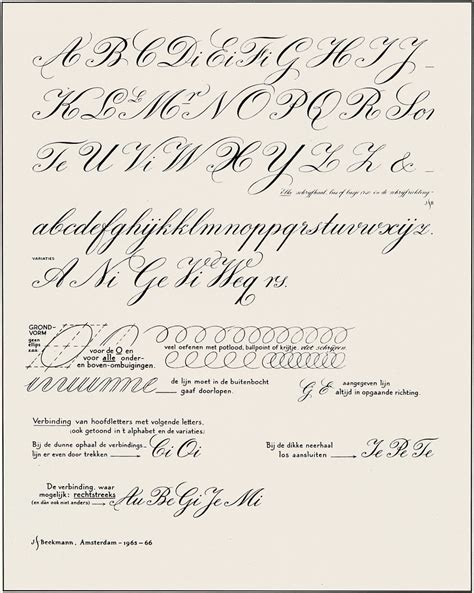 A B C Di Ei Fi G H I J
K L Le Mr N O P Q R Sor
Te U Vi W X Y Z Z & -
abcdefghijkklmnoppqrstuvwxijz.
VARIATIES
A Ni Ge Vi Weq rs.
GROND-
VORM
geen
ellips
voor de O en
voor alle onder-
en boven-ombuigingen.
veel oefenen met potlood, ballpoint of krijtje.
de lijn moet in de buitenbocht
gaaf doorlopen.
G, E
aangegeven lijn
altijd in opgaande richting.
Verbinding van hoofdletters met volgende letters,
(ook getoond in 't alphabet en de variaties)
Bij de dunne ophaal de verbindings-
lijn er even door trekken
Ci Oi
Bij de dikke neerhaal
los aansluiten
Ie Pe Te
De verbinding, waar
mogelijk: rechtstreeks
(en dan ook niet anders)
Au Be Gi Je Mi
J. Beekmann, Amsterdam - 1965-66